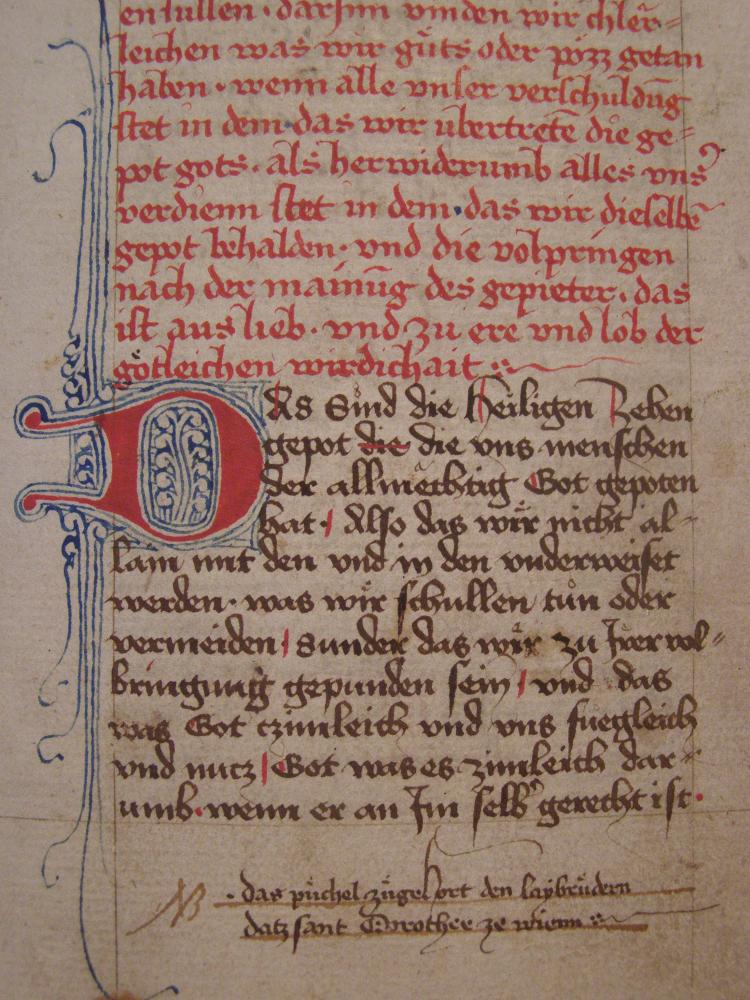 en sullen · darinn vinden wir chler=
leichen was wir gůts oder pözz getan
haben · wenn alle vnser verschuldūg
stet in dem das wir übertretē die ge=
pot gots · als herwiderumb alles vns
verdienn stet in dem · das wir dieselbē
gepot behalden · vnd die volpringen
nach der mainūg des gepieter · das
ist aus lieb · vnd zu ere vnd lob der
gotleichen wirdichait
DAs sind die heiligen zehen
gepot die die vns menschen
der allmechtig Got gepoten
hat · Also das wir nicht al=
lain mit den vnd in den vnderweiset
werden · was wir schullen tůn oder
vermeiden | sunder das wir zu Irer vol=
bringung gepunden sein | vnd das
was Got czimleich vnd vns fuegleich
vnd nucz | Got was es zimleich dar=
umb · wenn er an Im selb gerecht ist ·
NB · das püchel zůgehort den laybrüdern
datz sant Dorothee ze wienn